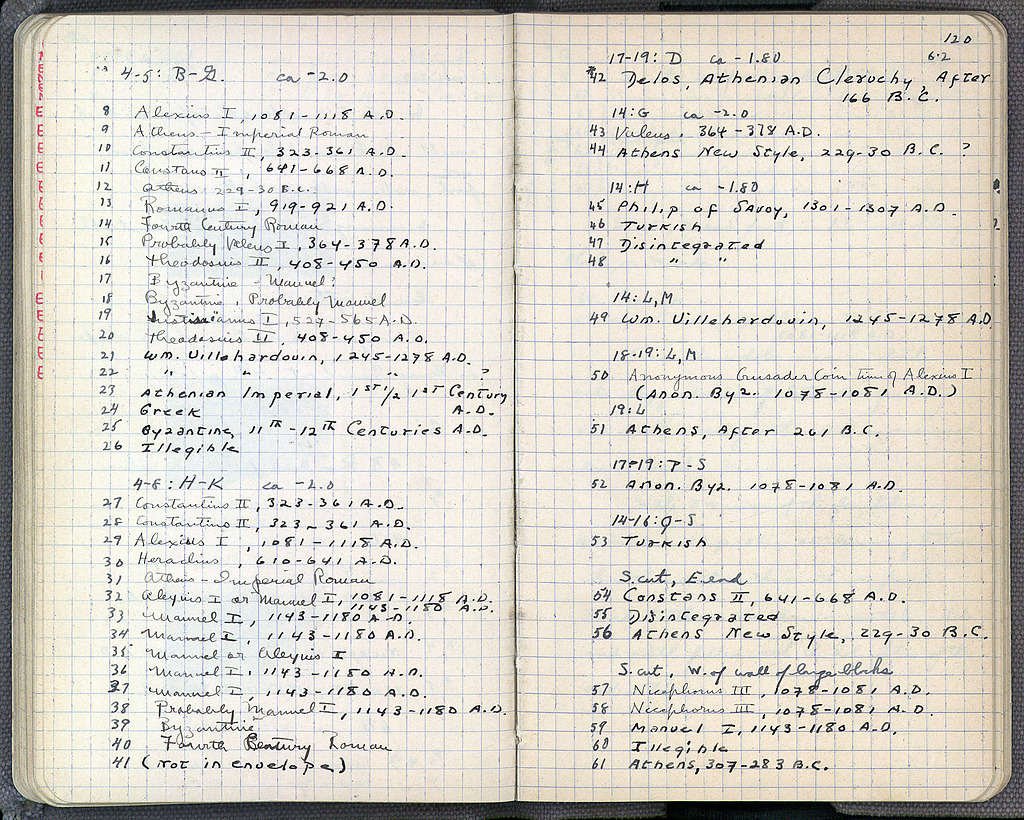 4-5: B-G. ca -2.0
8 Alexius I, 1081-1118 A.D.
9 Athens - Imperial Roman
10 Constantius II, 323-361 A.D.
11 Constans II, 641-668 A.D.
12 Athens 229-30 B.C.
13 Romanus I, 919-921 A.D.
14 Fourth Century Roman
15 Probably Valens I, 364-378 A.D.
16 Theodosius II, 408-450 A.D.
17 Byzantine - Manuel?
18 Byzantine, Probably Manuel
19 Justinianus I, 527-565 A.D.
20 Theodosius II, 408-450 A.D.
21 Wm. Villehardouin, 1245-1278 A.D.
22 " " " ?
23 Athenian Imperial, 1ST 1/2 1ST Century A.D.
24 Greek
25 Byzantine, 11TH-12TH Centuries A.D.
26 Illegible
4-8: H-K ca -2.0
27 Constantius II, 323-361 A.D.
28 Constantius II, 323-361 A.D.
29 Alexius I, 1081-1118 A.D.
30 Heraclius, 610-641 A.D.
31 Athens - Imperial Roman
32 Alexius I or Manuel I, 1081-1118 A.D.
1143-1180 A.D.
33 Manuel I, 1143-1180 A.D.
34 Manuel I, 1143-1180 A.D.
35 Manuel or Alexius I
36 Manuel I, 1143-1180 A.D.
37 Manuel I, 1143-1180 A.D.
38 Probably Manuel I, 1143-1180 A.D.
39 Byzantine
40 Fourth Century Roman
41 (Not in envelope)
120
17-19: D ca -1.80 6.2
42 Delos, Athenian Cleruchy, After
166 B.C.
14: G ca -2.0
43 Valens, 364-378 A.D.
44 Athens New Style, 229-30 B.C. ?
14: H ca -1.80
45 Philip of Savoy, 1301-1307 A.D.
46 Turkish
47 Disintegrated
48 " "
14: L,M
49 Wm. Villehardouin, 1245-1278 A.D.
18-19: L,M
50 Anonymous Crusader Coin time of Alexius I
(Anon. Byz. 1078-1081 A.D.)
19: L
51 Athens, After 261 B.C.
17-19: P-S
52 Anon. Byz. 1078-1081 A.D.
14-16: Q-S
53 Turkish
S. cut, E. end
54 Constans II, 641-668 A.D.
55 Disintegrated
56 Athens New Style, 229-30 B.C.
S. cut, W. of wall of large blocks
57 Nicephorus III, 1078-1081 A.D.
58 Nicephorus III, 1078-1081 A.D.
59 Manuel I, 1143-1180 A.D.
60 Illegible
61 Athens, 307-283 B.C.